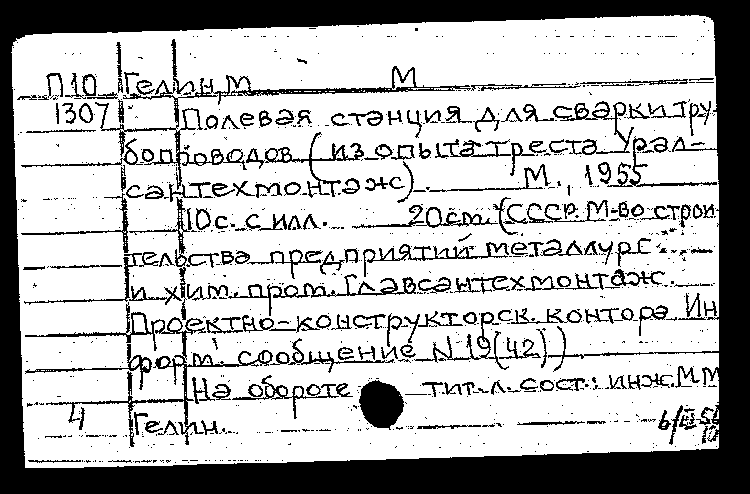 П10 Гелин, М М
1307 Полевая станция для сварки тру-
бопроводов (из опыта треста Урал-
сантехмонтаж). М., 1955
10с. с илл. 20см. (СССР. М-во строи
тельства предприятий металлург.
и хим. пром. Главсантехмонтаж.
Проектно-конструкторск. контора Ин
форм. сообщение N 19(42)).
На обороте тит. л. сост.: инж. М М
4 Гелин.